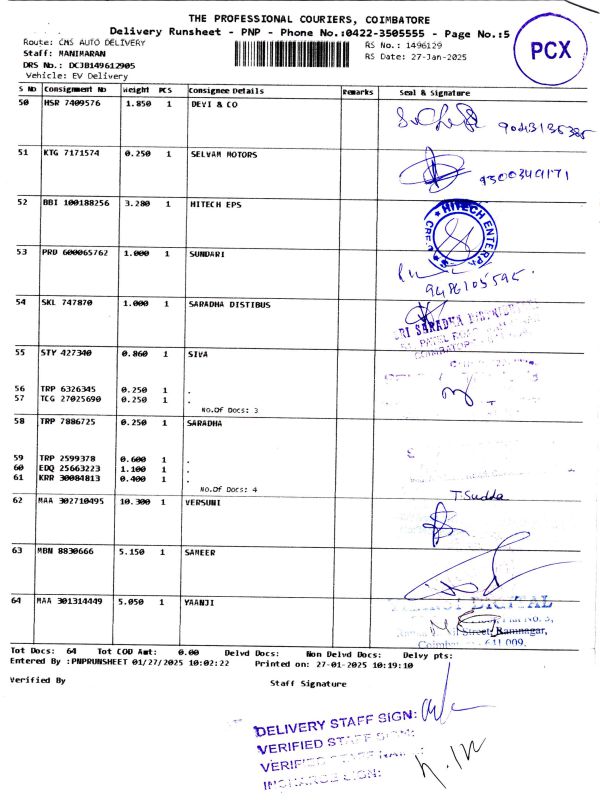 THE PROFESSIONAL COURIERS, COIMBATORE
Delivery Runsheet - PNP - Phone No.:0422-3505555 - Page No.:5
PCX
Route: CMS AUTO DELIVERY
RS No.: 1496129
Staff: MANIMARAN
RS Date: 27-Jan-2025
DRS No.: DCJB149612905
Vehicle: EV Delivery
S No Consignment No Weight PCS Consignee Details Remarks Seal & Signature
50 HSR 7409576 1.850 1 DEVI & CO
51 KTG 7171574 0.250 1 SELVAM MOTORS
9300349171
52 BBI 100188256 3.280 1 HITECH EPS
HITECH ENTERP
53 PRO 600065762 1.000 1 SUNDARI
9486105595
54 SKL 747870 1.000 1 SARADHA DISTIBUS
SRI SARADHA
55 STY 427340 0.860 1 SIVA
56 TRP 6326345 0.250 1 .
57 TCG 27025690 0.250 1 .
No.Of Docs: 3
58 TRP 7886725 0.250 1 SARADHA
59 TRP 2599378 0.600 1 .
60 EDQ 25663223 1.100 1 .
61 KRR 30084813 0.400 1 .
No.Of Docs: 4
T. Sudda
62 MAA 302710495 10.300 1 VERSUNI
63 MBN 8830666 5.150 1 SAMEER
64 MAA 301314449 5.050 1 YAANJI
DIGITAL
No. 3,
Street, Ramnagar,
641 009.
Tot Docs: 64 Tot COD Amt: 0.00 Delvd Docs: Non Delvd Docs: Delvy pts:
Entered By :PNPRUNSHEET 01/27/2025 10:02:22 Printed on: 27-01-2025 10:19:10
Verified By Staff Signature
DELIVERY STAFF SIGN:
VERIFIED STAFF SIGN:
VERIFIED STAFF NAME:
INCHARGE SIGN: